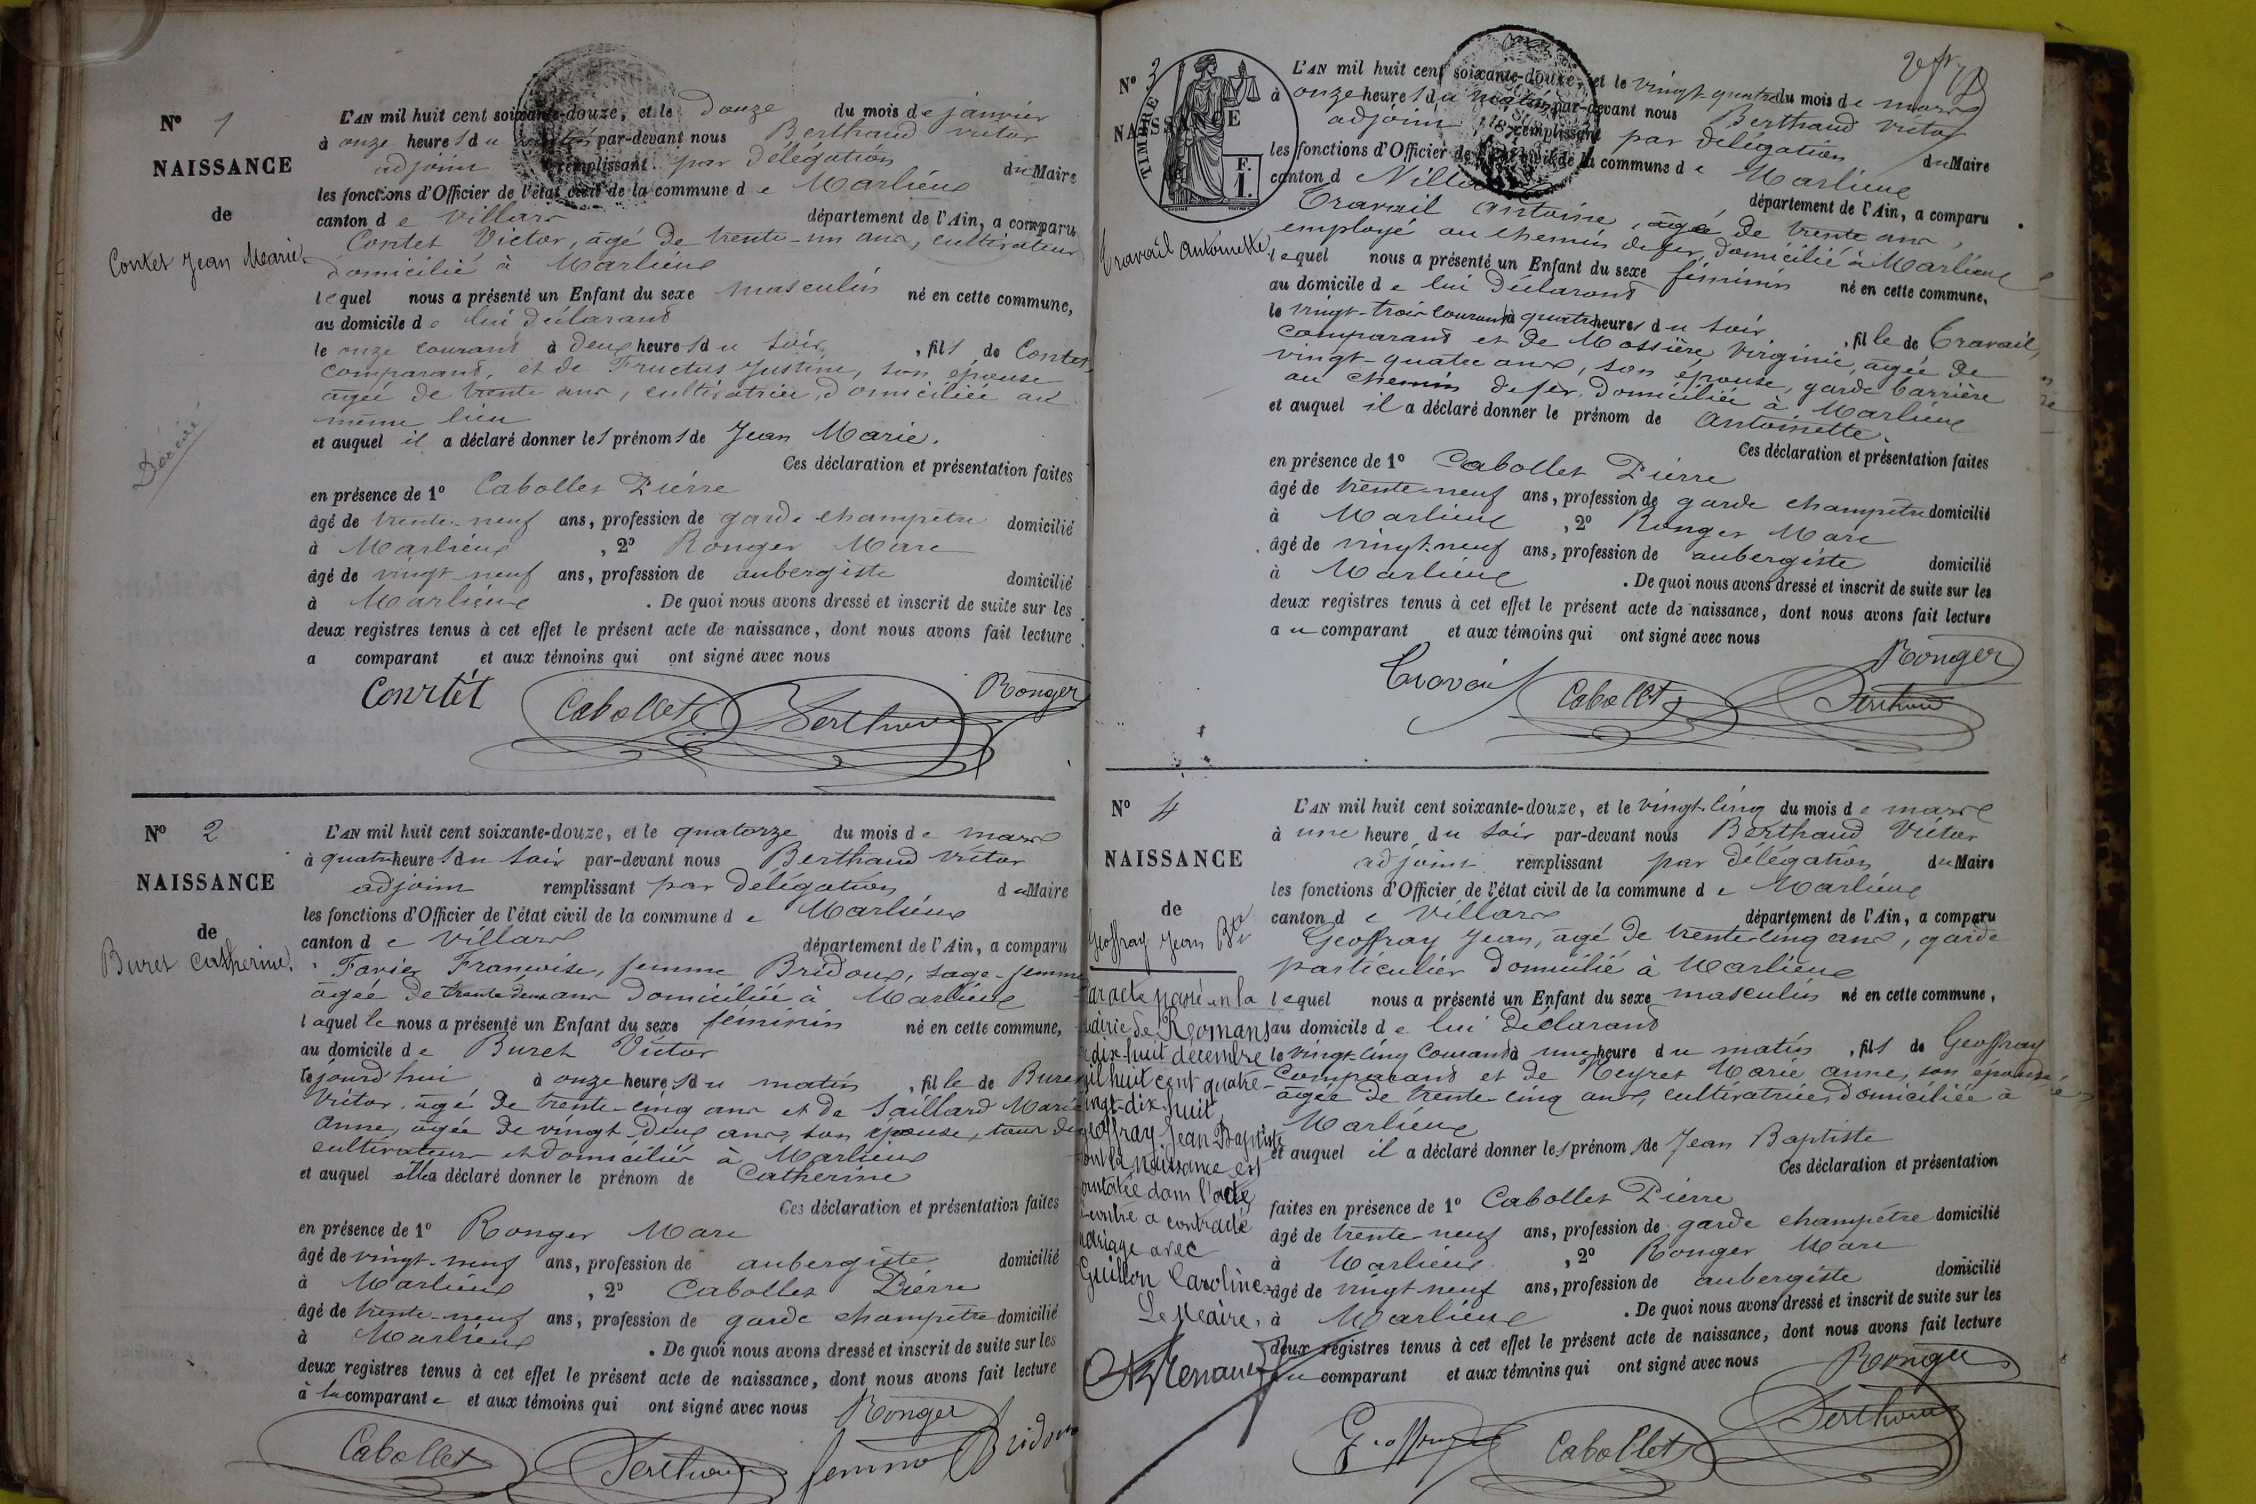 N° 1
NAISSANCE
de
Contet Jean Marie
Décédé
L'AN mil huit cent soixante-douze, et le douze du mois de janvier
à onze heures du matin par-devant nous Berthaud Victor
adjoint remplissant par délégation du Maire
les fonctions d'Officier de l'état civil de la commune de Marlieux
canton de Villars département de l'Ain, a comparu
Contet Victor, âgé de trente-un ans, cultivateur
domicilié à Marlieux
lequel nous a présenté un Enfant du sexe masculin né en cette commune,
au domicile de lui déclarant
le onze courant à deux heures du soir, fils de Contet
comparant, et de Fructus Justine, son épouse
âgée de trente ans, cultivatrice, domiciliée au
même lieu
et auquel il a déclaré donner les prénoms de Jean Marie.
Ces déclaration et présentation faites
en présence de 1° Cabollet Pierre
âgé de trente-neuf ans, profession de garde champêtre domicilié
à Marlieux, 2° Ronger Marc
âgé de vingt-neuf ans, profession de aubergiste domicilié
à Marlieux. De quoi nous avons dressé et inscrit de suite sur les
deux registres tenus à cet effet le présent acte de naissance, dont nous avons fait lecture
a comparant et aux témoins qui ont signé avec nous
Conrtet Cabollet Berthaud Ronger
N° 2
NAISSANCE
de
Buret Catherine.
L'AN mil huit cent soixante-douze, et le quatorze du mois de mars
à quatre heures du soir par-devant nous Berthaud Victor
adjoint remplissant par délégation du Maire
les fonctions d'Officier de l'état civil de la commune de Marlieux
canton de Villars département de l'Ain, a comparu
Favier Françoise, femme Bridoux, sage-femme
âgée de trente deux ans domiciliée à Marlieux
laquelle nous a présenté un Enfant du sexe féminin né en cette commune,
au domicile de Buret Victor
le jourd'hui à onze heures du matin, fille de Buret
Victor, âgé de trente-cinq ans et de Saillard Marie
Anne, âgée de vingt-deux ans, son épouse, tous deux
cultivateurs et domiciliés à Marlieux
et auquel elle a déclaré donner le prénom de Catherine
Ces déclaration et présentation faites
en présence de 1° Ronger Marc
âgé de vingt-neuf ans, profession de aubergiste domicilié
à Marlieux, 2° Cabollet Pierre
âgé de trente-neuf ans, profession de garde champêtre domicilié
à Marlieux. De quoi nous avons dressé et inscrit de suite sur les
deux registres tenus à cet effet le présent acte de naissance, dont nous avons fait lecture
à la comparante et aux témoins qui ont signé avec nous
Ronger
Cabollet Berthaud femme Bridoux
N° 3
TIMBRE
F.
1.
NAISSANCE
Travail Antoinette
L'AN mil huit cent soixante-douze, et le vingt-quatre du mois de mars
à onze heures du matin par-devant nous Berthaud Victor
adjoint remplissant par délégation du Maire
les fonctions d'Officier de l'état civil de la commune de Marlieux
canton de Villars département de l'Ain, a comparu
Travail Antoine, âgé de trente ans,
employé au chemin de fer, domicilié à Marlieux
lequel nous a présenté un Enfant du sexe féminin né en cette commune,
au domicile de lui déclarant
le vingt-trois courant à quatre heures du soir, fille de Travail,
comparant et de Mossière Virginie, âgée de
vingt-quatre ans, son épouse, garde barrière
au chemin de fer, domiciliée à Marlieux
et auquel il a déclaré donner le prénom de Antoinette.
Ces déclaration et présentation faites
en présence de 1° Cabollet Pierre
âgé de trente-neuf ans, profession de garde champêtre domicilié
à Marlieux, 2° Ronger Marc
âgé de vingt-neuf ans, profession de aubergiste domicilié
à Marlieux. De quoi nous avons dressé et inscrit de suite sur les
deux registres tenus à cet effet le présent acte de naissance, dont nous avons fait lecture
au comparant et aux témoins qui ont signé avec nous
Ronger
Travail Cabollet Berthaud
N° 4
NAISSANCE
de
Geoffray Jean Bte
L'AN mil huit cent soixante-douze, et le vingt-cinq du mois de mars
à une heure du soir par-devant nous Berthaud Victor
adjoint remplissant par délégation du Maire
les fonctions d'Officier de l'état civil de la commune de Marlieux
canton de Villars département de l'Ain, a comparu
Geoffray Jean, âgé de trente-cinq ans, garde
particulier domicilié à Marlieux
lequel nous a présenté un Enfant du sexe masculin né en cette commune,
au domicile de lui déclarant
le vingt-cinq courant à une heure du matin, fils de Geoffray
comparant et de Neyret Marie Anne, son épouse,
âgée de trente-cinq ans, cultivatrice, domiciliée à
Marlieux
et auquel il a déclaré donner les prénoms de Jean Baptiste
Ces déclaration et présentation
faites en présence de 1° Cabollet Pierre
âgé de trente-neuf ans, profession de garde champêtre domicilié
à Marlieux, 2° Ronger Marc
âgé de vingt-neuf ans, profession de aubergiste domicilié
à Marlieux. De quoi nous avons dressé et inscrit de suite sur les
deux registres tenus à cet effet le présent acte de naissance, dont nous avons fait lecture
au comparant et aux témoins qui ont signé avec nous
Ronger
Geoffray Cabollet Berthaud
Par acte passé en la
mairie de Romans
le dix-huit décembre
mil huit cent quatre-
vingt-dix-huit,
Geoffray Jean Baptiste
dont la naissance est
constatée dans l'acte
ci-contre a contracté
mariage avec
Guillon Caroline
Le Maire,